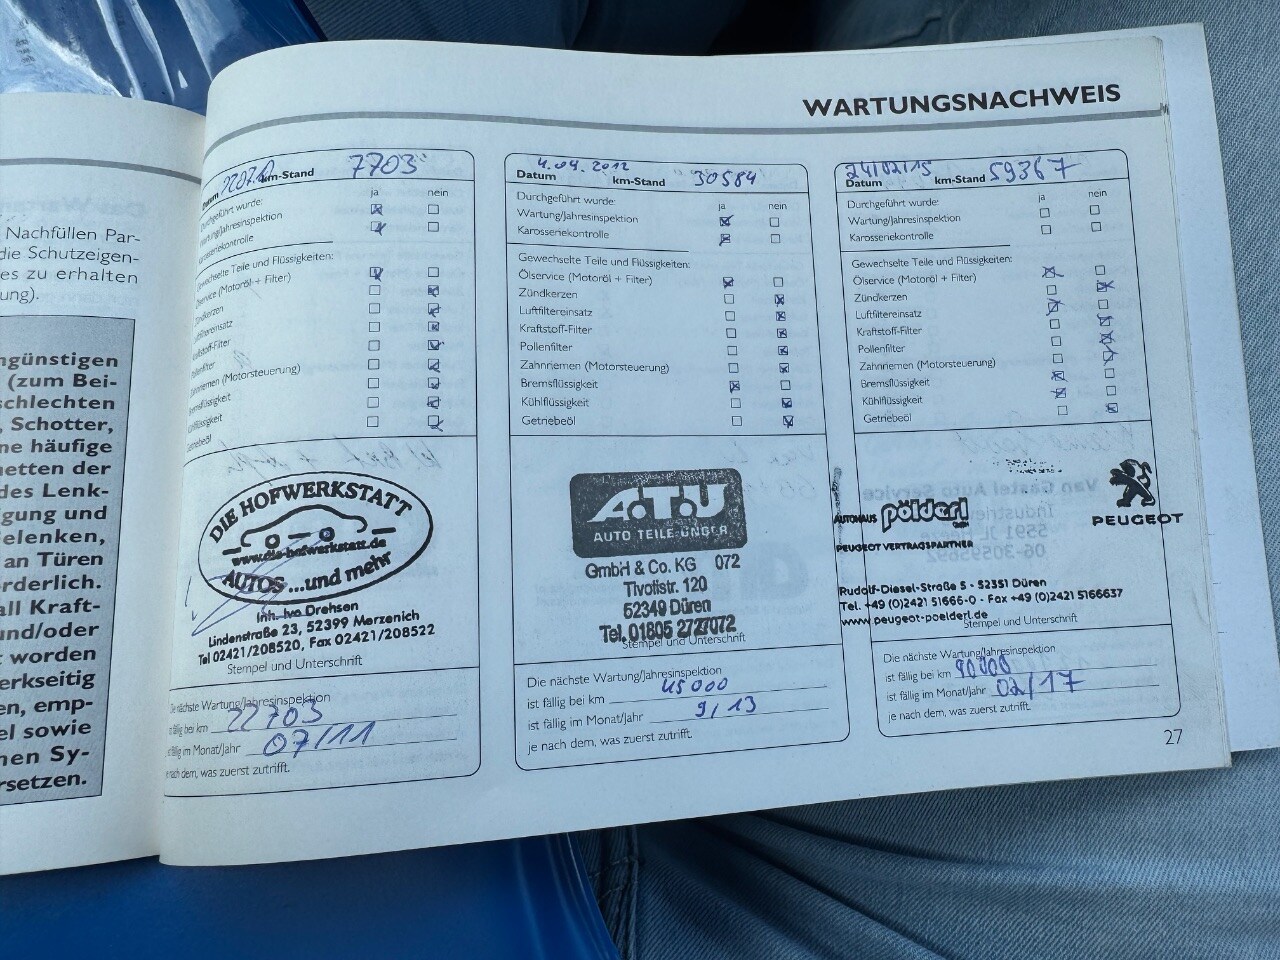 Nachfüllen Par-
die Schutzeigen-
es zu erhalten
ung).
ngünstigen
(zum Bei-
schlechten
, Schotter,
ne häufige
netten der
des Lenk-
igung und
elenken,
an Türen
orderlich.
all Kraft-
und/oder
worden
erkseitig
en, emp-
el sowie
nen Sy-
ersetzen.
WARTUNGSNACHWEIS
Datum km-Stand 7703
ja nein
Durchgeführt wurde:
Wartung/Jahresinspektion
Karosseriekontrolle
Gewechselte Teile und Flüssigkeiten:
Ölservice (Motoröl + Filter)
Zündkerzen
Luftfiltereinsatz
Kraftstoff-Filter
Pollenfilter
Zahnriemen (Motorsteuerung)
Bremsflüssigkeit
Kühlflüssigkeit
Getriebeöl
DIE HOFWERKSTATT
www.die-hofwerkstatt.de
AUTOS ...und mehr
Inh. Ivo Drehsen
Lindenstraße 23, 52399 Merzenich
Tel 02421/208520, Fax 02421/208522
Stempel und Unterschrift
Die nächste Wartung/Jahresinspektion
ist fällig bei km 22703
ist fällig im Monat/Jahr 07/11
je nach dem, was zuerst zutrifft.
4.04.2012 30584
Datum km-Stand
ja nein
Durchgeführt wurde:
Wartung/Jahresinspektion
Karosseriekontrolle
Gewechselte Teile und Flüssigkeiten:
Ölservice (Motoröl + Filter)
Zündkerzen
Luftfiltereinsatz
Kraftstoff-Filter
Pollenfilter
Zahnriemen (Motorsteuerung)
Bremsflüssigkeit
Kühlflüssigkeit
Getriebeöl
A.T.U
AUTO TEILE UNGER
GmbH & Co. KG 072
Tivolistr. 120
52349 Düren
Tel. 01805 2727072
Stempel und Unterschrift
Die nächste Wartung/Jahresinspektion
ist fällig bei km 45000
ist fällig im Monat/Jahr 9/13
je nach dem, was zuerst zutrifft.
24/02/15 59367
Datum km-Stand
ja nein
Durchgeführt wurde:
Wartung/Jahresinspektion
Karosseriekontrolle
Gewechselte Teile und Flüssigkeiten:
Ölservice (Motoröl + Filter)
Zündkerzen
Luftfiltereinsatz
Kraftstoff-Filter
Pollenfilter
Zahnriemen (Motorsteuerung)
Bremsflüssigkeit
Kühlflüssigkeit
Getriebeöl
AUTOHAUS pölderl
PEUGEOT VERTRAGSPARTNER
PEUGEOT
Rudolf-Diesel-Straße 5 - 52351 Düren
Tel. +49 (0)2421 51666-0 - Fax +49 (0)2421 5166637
www.peugeot-poelderl.de
Stempel und Unterschrift
Die nächste Wartung/Jahresinspektion
ist fällig bei km 90000
ist fällig im Monat/Jahr 02/17
je nach dem, was zuerst zutrifft.
27